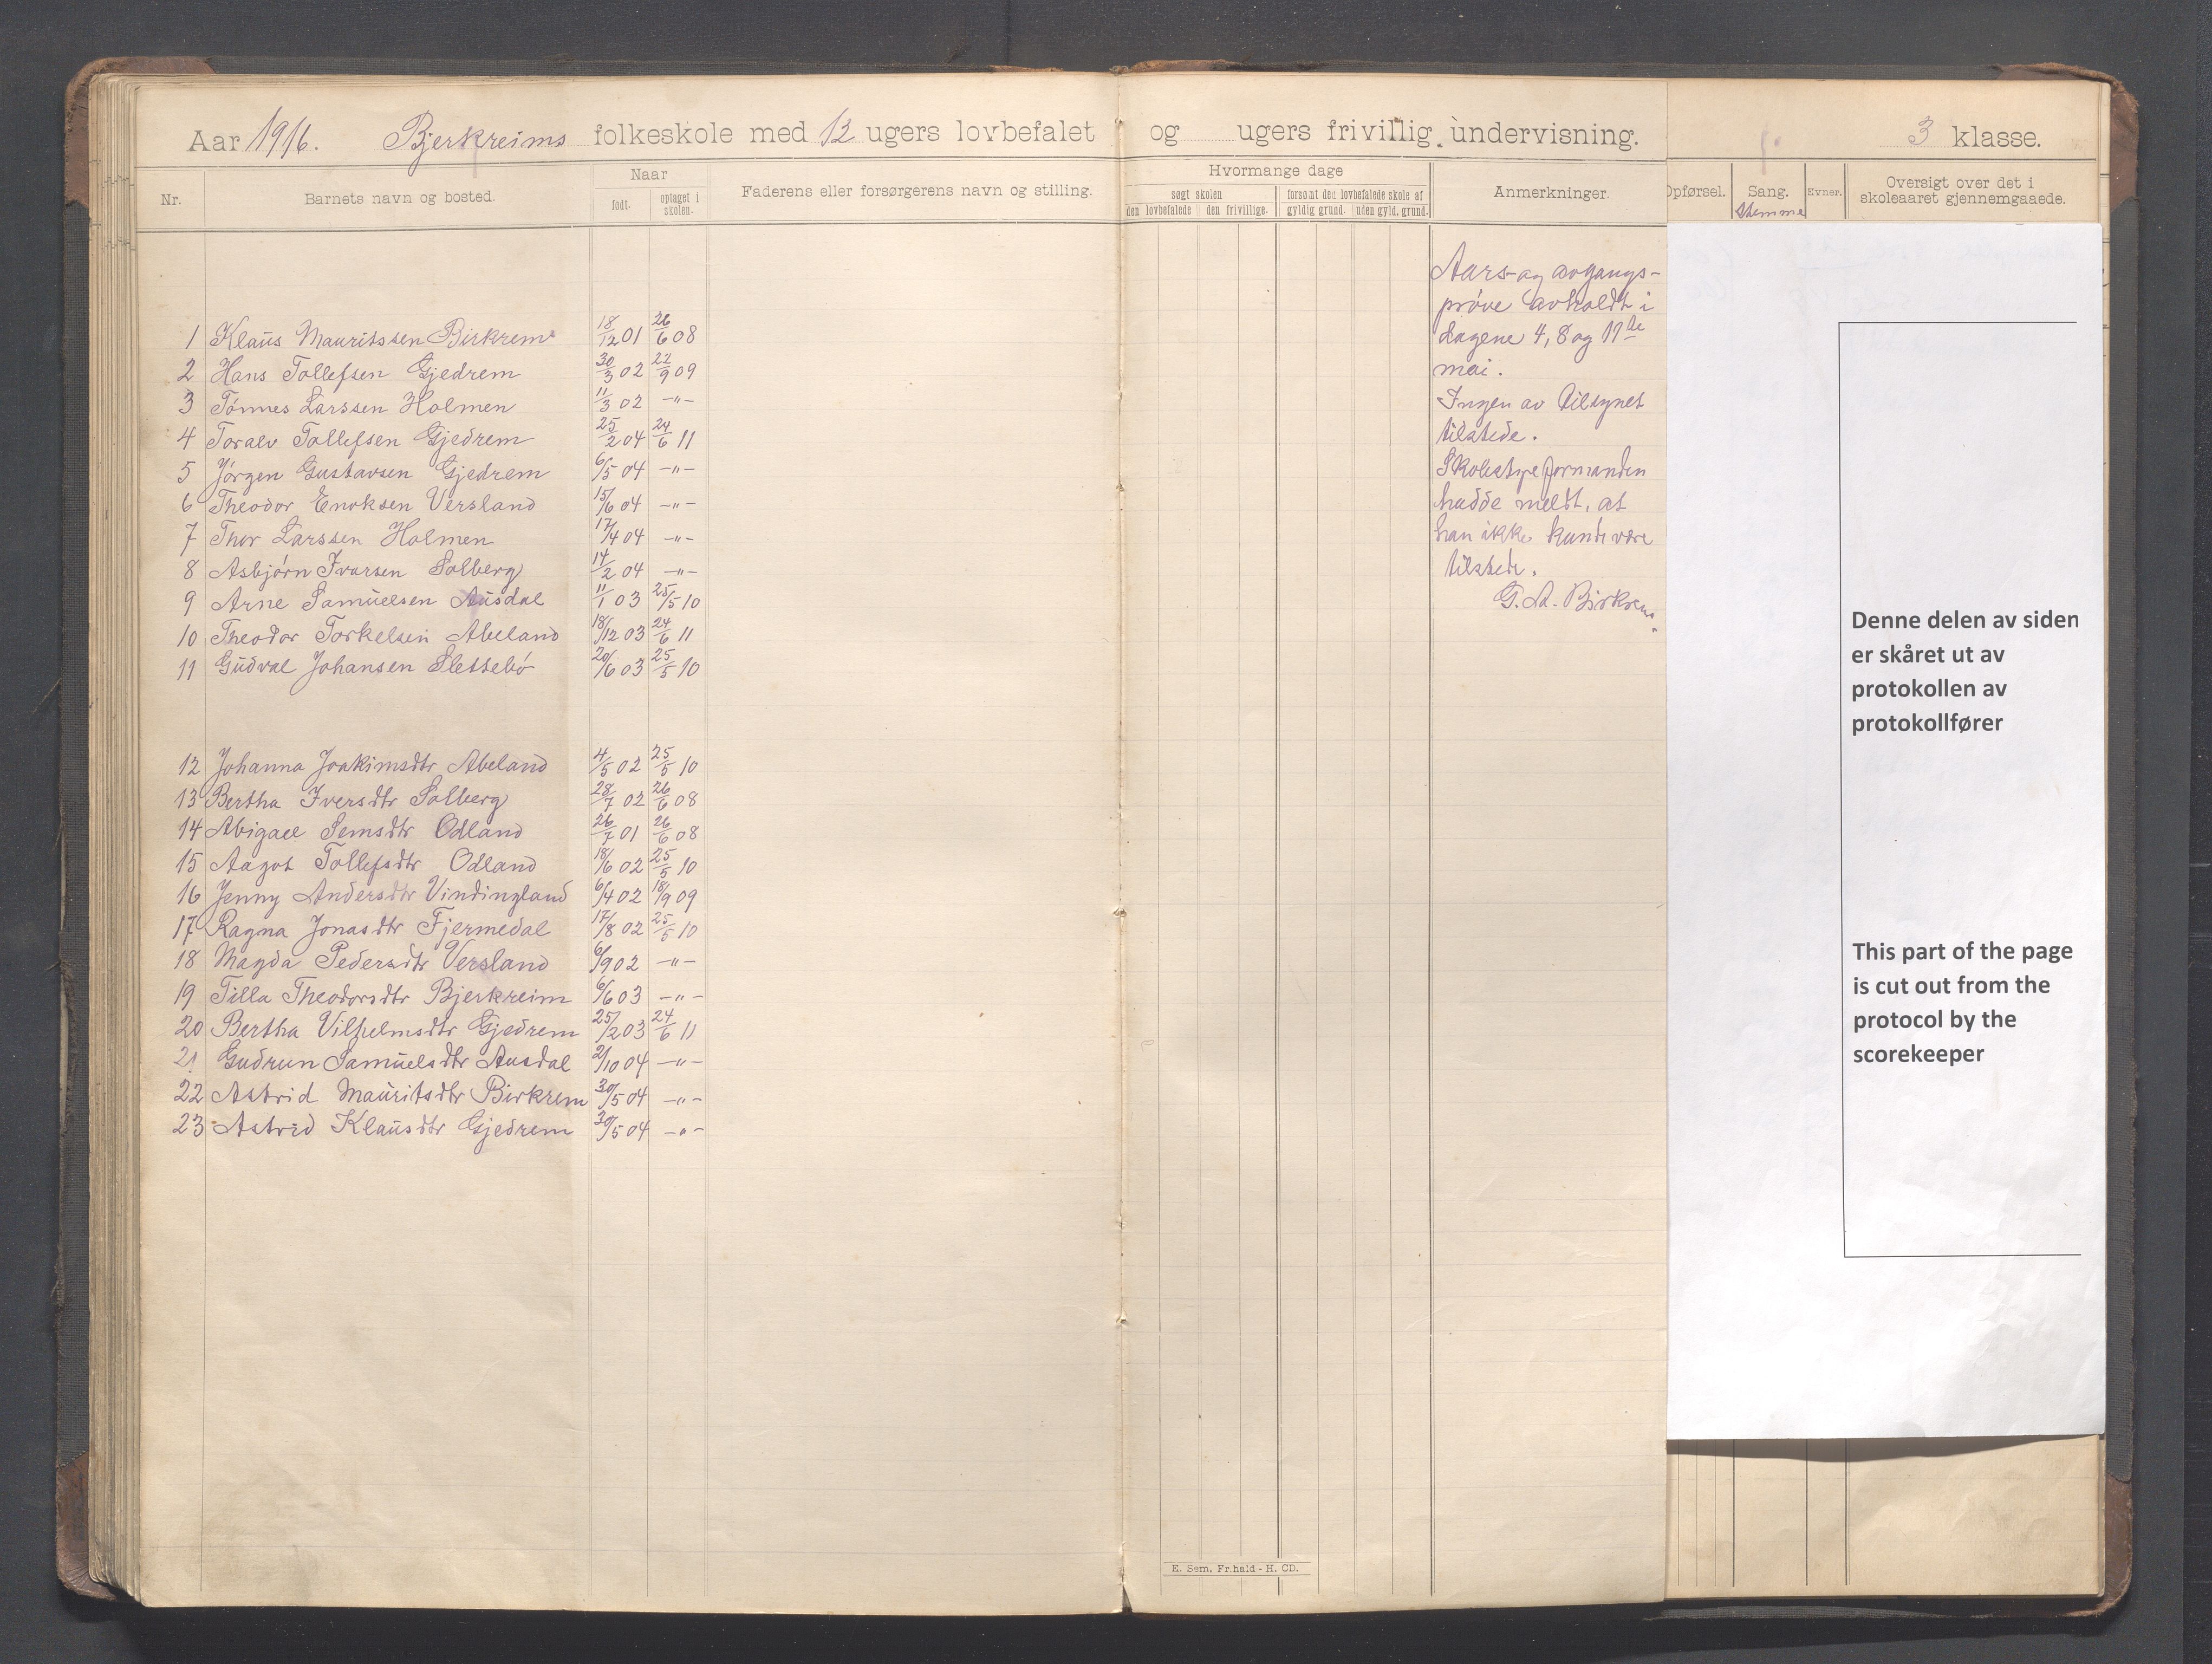 Aar 1916. Bjerkreims folkeskole med 12 ugers lovbefalet og ugers frivillig undervisning. 3 klasse.
Nr. Barnets navn og bosted. Naar født. optaget i skolen. Faderens eller forsørgerens navn og stilling. Hvormange dage søgt skolen den lovbefalede den frivillige. forsømt den lovbefalede skole af gyldig grund. uden gyld. grund. Anmerkninger. Opførsel. Sang. Stemme Evner. Oversigt over det i skoleaaret gjennemgaaede.
1 Klaus Mauritssen Birkrem 18/12 01 26/6 08
2 Hans Tollefsen Gjedrem 30/3 02 22/9 09
3 Tónnes Larssen Holmen 11/3 02 -"-
4 Toralv Tollefsen Gjedrem 25/2 04 24/6 11
5 Jórgen Gustavsen Gjedrem 6/5 04 -"-
6 Theodor Enoksen Versland 15/6 04 -"-
7 Thor Larssen Holmen 17/4 04 -"-
8 Asbjórn Ivarsen Solberg 14/2 04 -"-
9 Arne Samuelsen Ausdal 11/1 03 25/5 10
10 Theodor Torkelsen Abeland 18/12 03 24/6 11
11 Gudval Johansen Slettebó 20/6 03 25/5 10
12 Johanna Joakimsdtr Abeland 4/5 02 25/5 10
13 Bertha Iversdtr Solberg 28/7 02 26/6 08
14 Abigael Semsdtr Odland 26/7 01 26/6 08
15 Aagot Tollefsdtr Odland 18/6 02 25/5 10
16 Jenny Andersdtr Vindingland 6/4 02 18/9 09
17 Ragna Jonasdtr Fjermedal 17/8 02 25/5 10
18 Magda Pedersdtr Versland 6/9 02 -"-
19 Tilla Theodorsdtr Bjerkreim 6/6 03 -"-
20 Bertha Vilhelmsdtr Gjedrem 25/2 03 24/6 11
21 Gudrun Samuelsdtr Ausdal 2/10 04 -"-
22 Astrid Mauritsdtr Birkrem 30/5 04 -"-
23 Astrid Klausdtr Gjedrem 30/5 04 -"-
Aars- og avgangs-
próve avholdt i
dagene 4, 8 og 11te
mai.
Ingen av tilsynet
tilstede.
Skolestyreformanden
hadde meldt, at
han ikke kunde være
tilstede.
G. A. Birkrem.
E. Sem. Fr.hald - H. CD.
Denne delen av siden
er skåret ut av
protokollen av
protokollfører
This part of the page
is cut out from the
protocol by the
scorekeeper